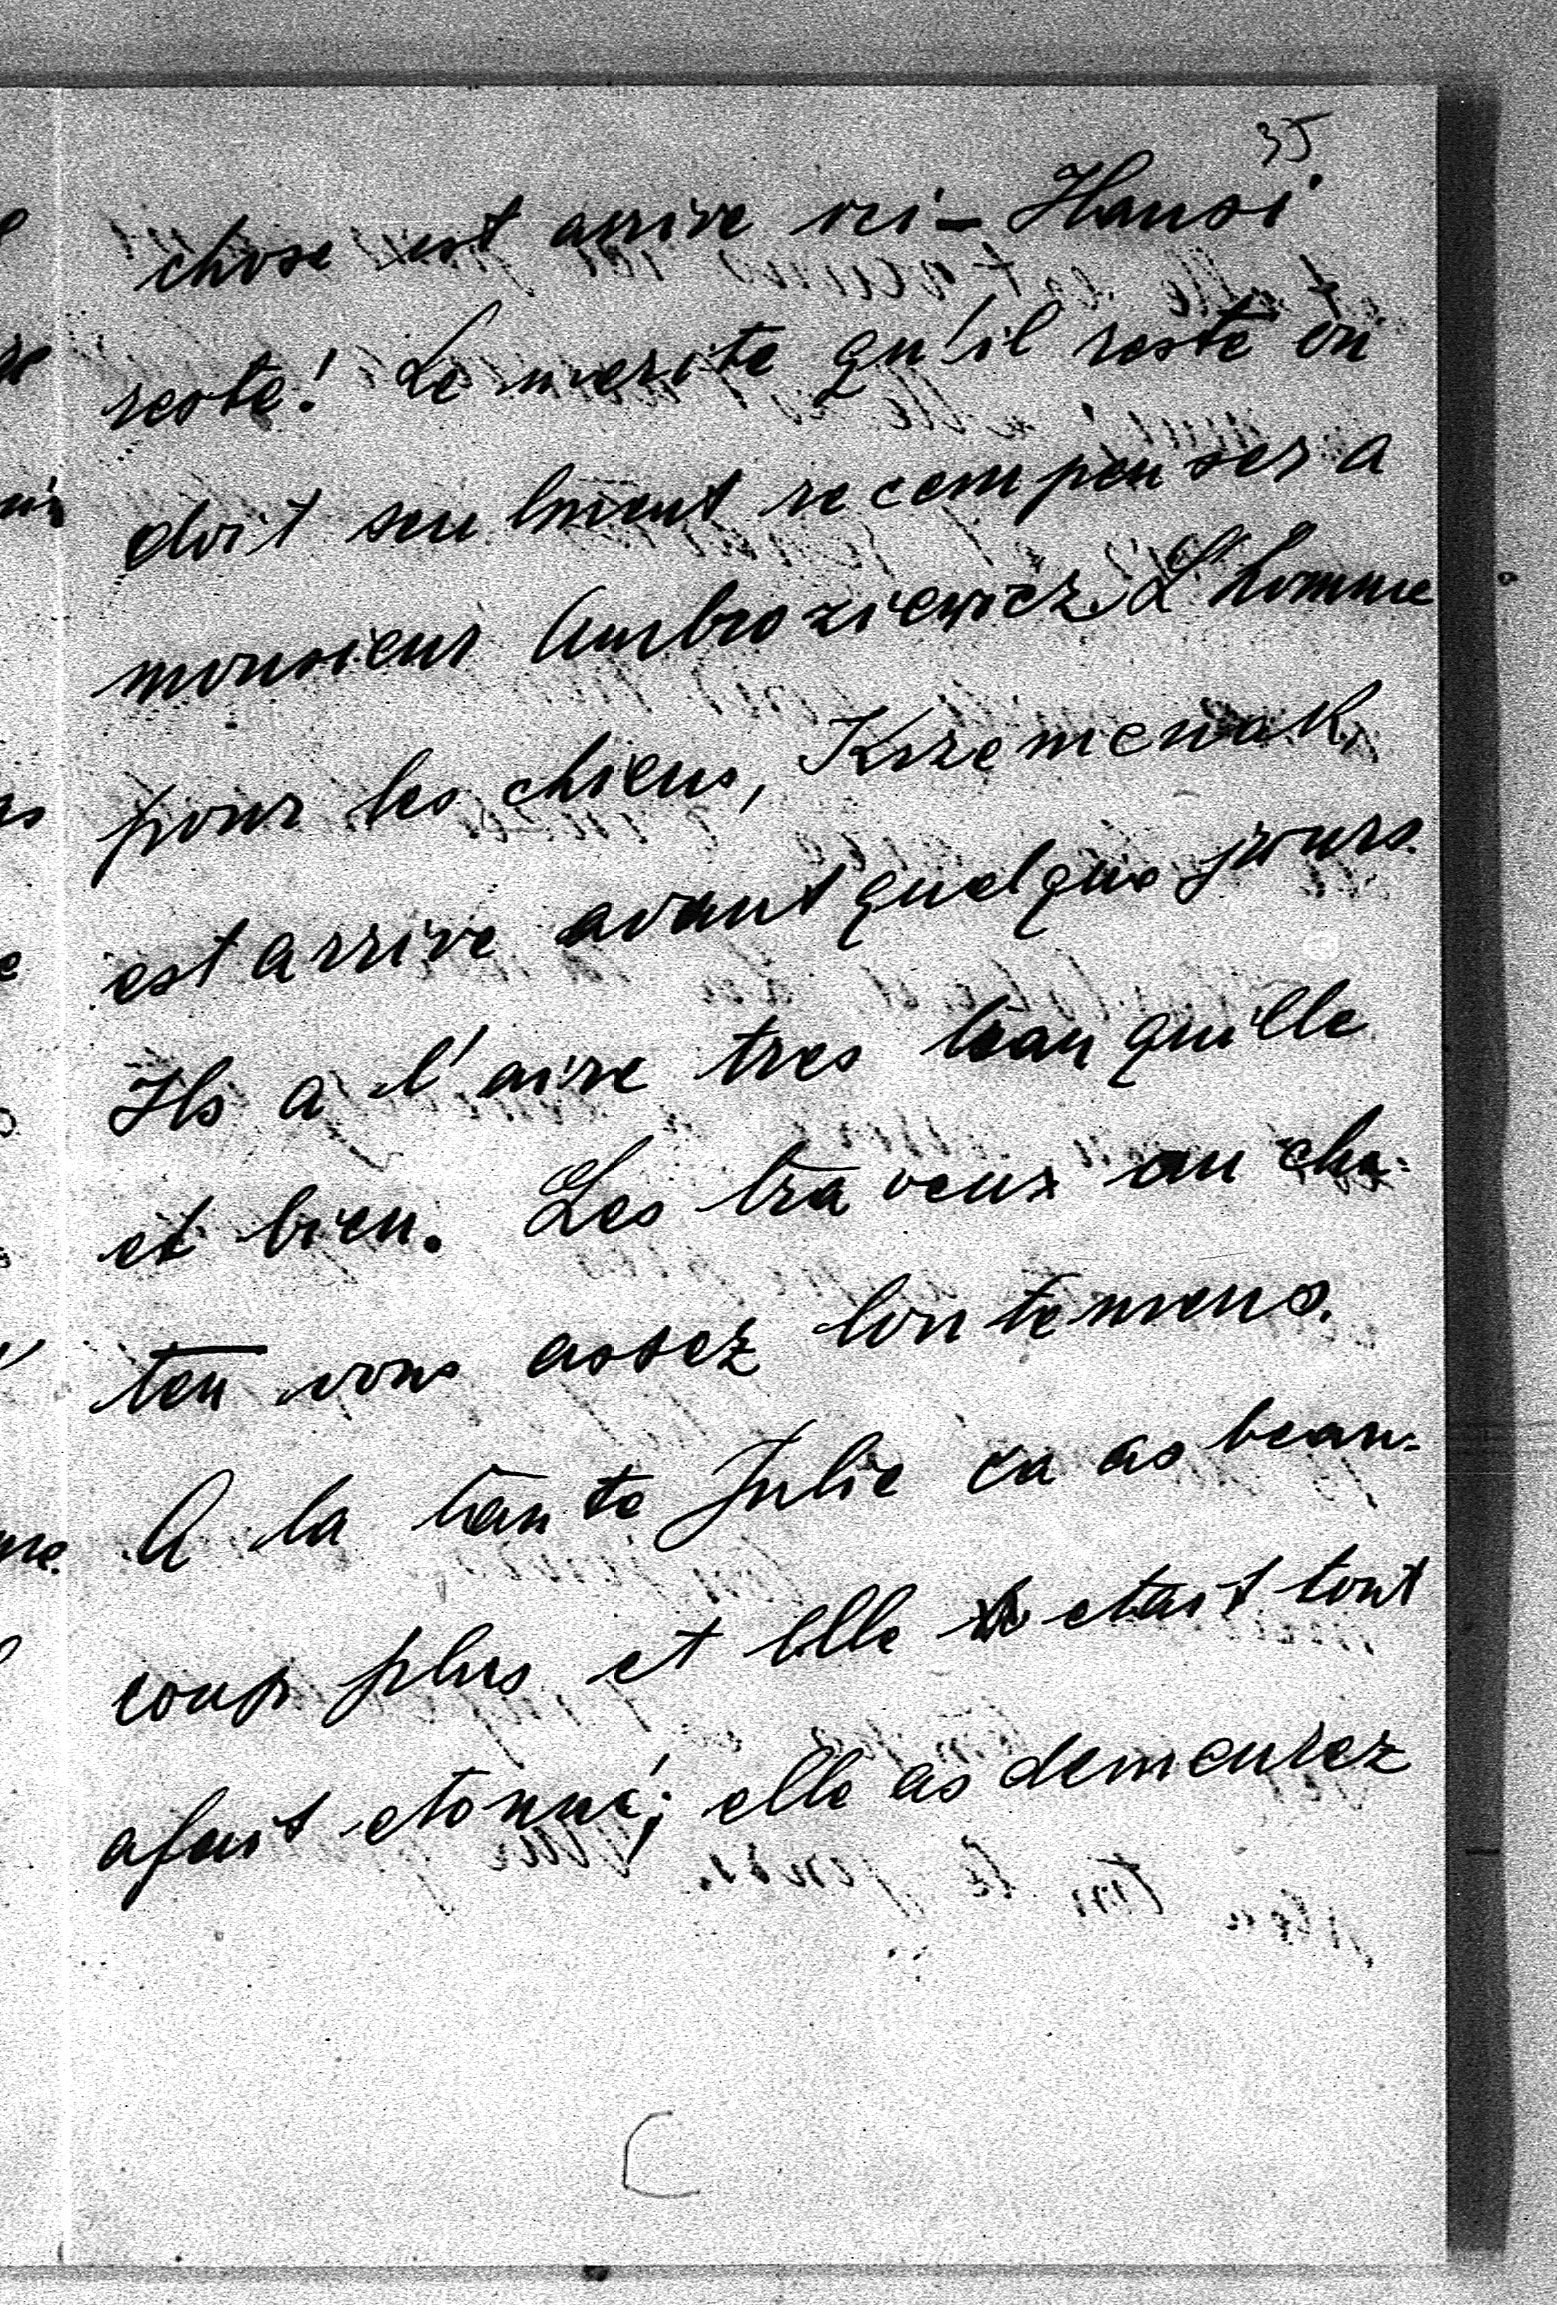 35
chose est arrive ici – Hansi
reste! Le merite qu'il reste on
doit seulment recempenser a
monsieur Ambroziewicz. L'homme
pour les chiens, Krzemieniak
est arrive avant quelque jours.
Ils a l'aire tres tranquille
et bien. Les traveux au cha-
teu vons assez lontemens.
A la tante Julie ca as beau-
coup plus et elle etait tout
afait etonné; elle as demeurez